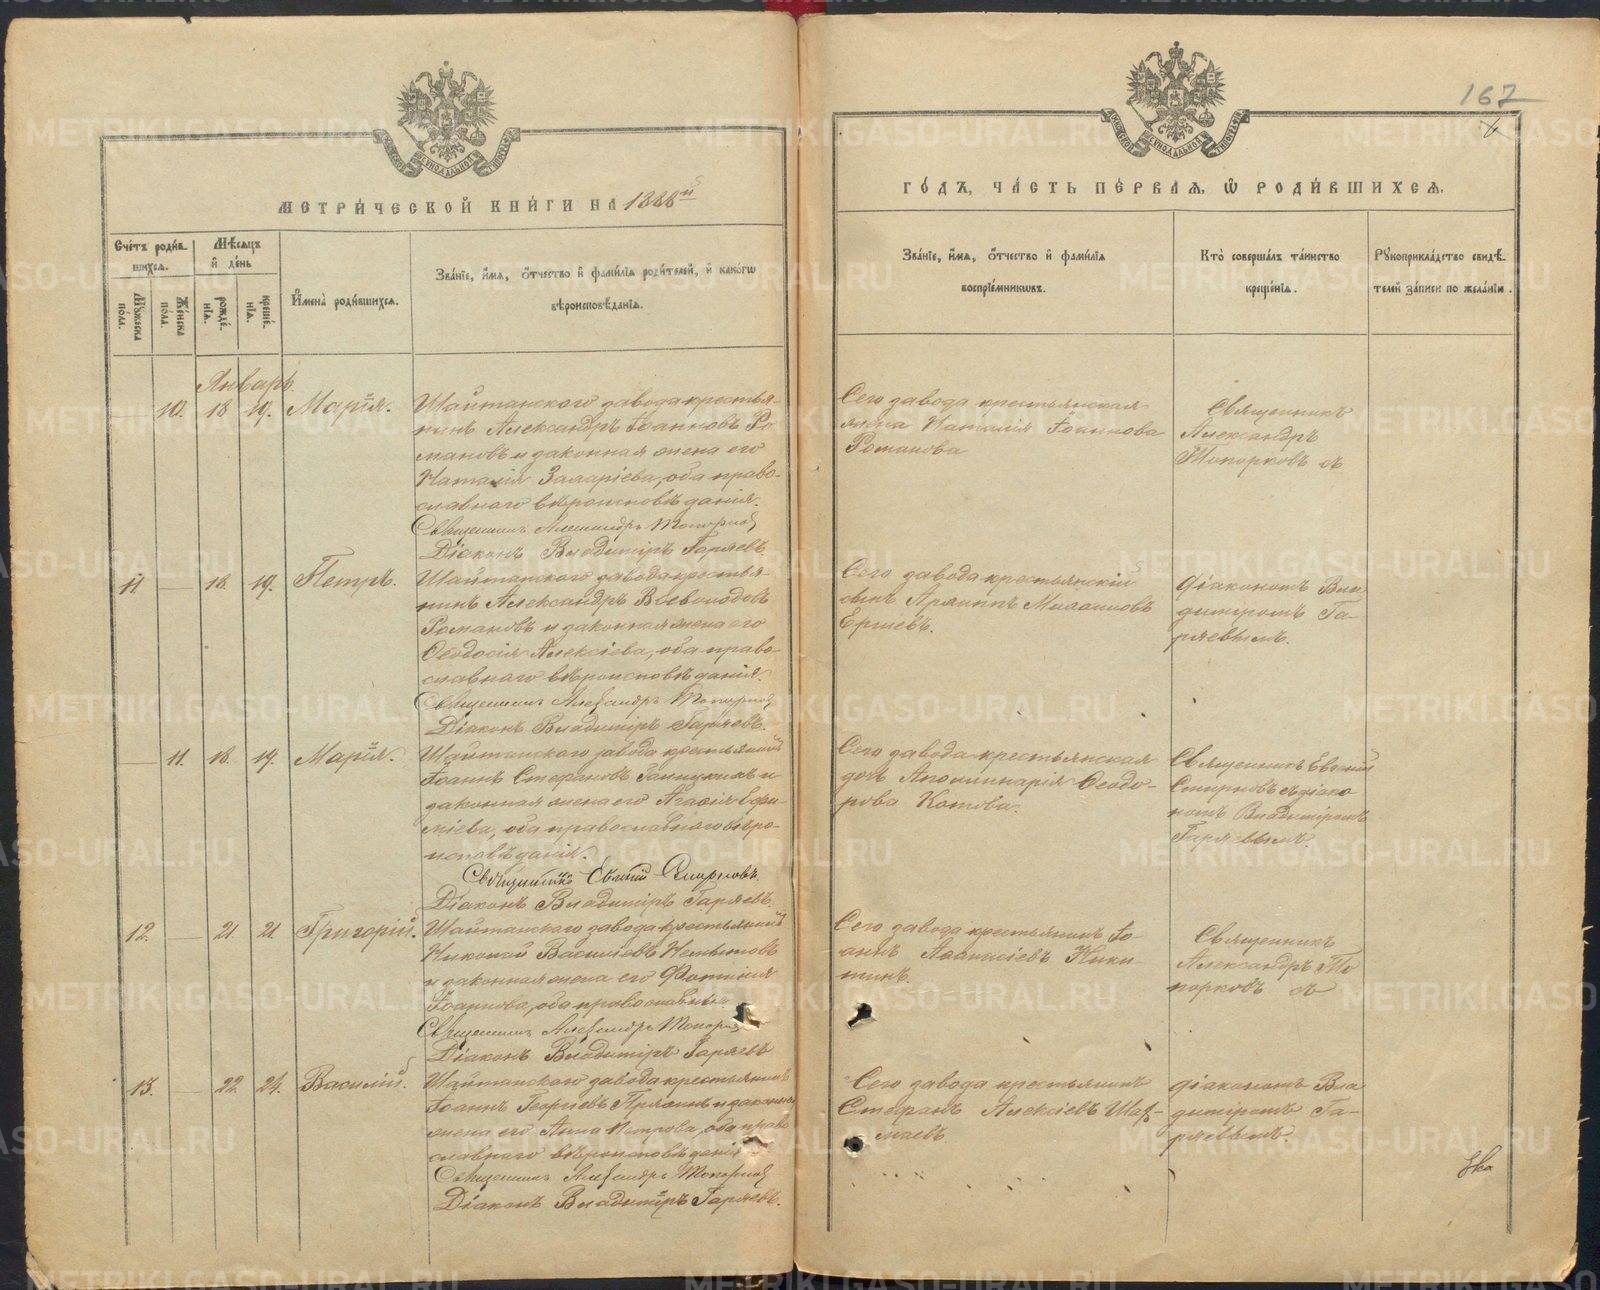 167
6
МЕТРИЧЕСКОЙ КНИГИ НА 1888й
ГОДЪ, ЧАСТЬ ПЕРВАЯ, Ѡ РОДИВШИХСЯ.
Счетъ родившихся.
Мѣсяцъ и день
Мужеска пола.
Женска пола.
рожденія.
крещенія.
Имена родившихся.
Званіе, имя, отчество и фамилія родителей, и какогѡ
вѣроисповѣданія.
Званіе, имя, отчество и фамилія
воспріемниковъ.
Кто совершалъ таинство
крещенія.
Рукоприкладство свидѣ-
телей записи по желанію.
Январь
10. 18 19. Марія.
Шайтанского завода крестья-
нинъ Александръ Іоанновъ Ро
мановъ и законная жена его
Наталія Захаріева, оба право-
славного вѣроисповѣданія.
Священникъ Александръ Топорковъ
Діаконъ Владиміръ Гаряевъ.
Сего завода крестьянская
жена Наталія Іоаннова
Романова
Священникъ
Александръ
Топорковъ съ
11 18. 19. Петръ.
Шайтанского завода крестья-
нинъ Александръ Всеволодовъ
Романовъ и законная жена его
Ѳеодосія Алексіева, оба право-
славнаго вѣроисповѣданія.
Священникъ Александръ Топорковъ
Діаконъ Владиміръ Гаряевъ.
Сего завода крестьянскій
сынъ Архиппъ
Ершевъ.
діакономъ Вла
диміромъ Га-
ряевымъ.
11. 18. 19. Марія.
Шайтанского завода крестьянинъ
Іоаннъ Стефановъ и
законная жена его Агафія Ефи-
міева, оба православнаго вѣро-
исповѣданія.
Священникъ Евгеній Смирновъ
Діаконъ Владиміръ Гаряевъ.
Сего завода крестьянская
дочь Аполлинарія Ѳеодо-
рова Котова.
Священникъ Евгеній
Смирновъ съ діако
номъ Владиміромъ
Гаряевымъ.
12. 21. 21. Григорій.
Шайтанского завода крестьянинъ
Николай Васильевъ
и законная жена его Фотинія
Іоаннова, оба православные
Священникъ Александръ Топорковъ
Діаконъ Владиміръ Гаряевъ
Сего завода крестьянинъ Іо
аннъ Аѳанасіевъ Ники-
тинъ.
Священникъ
Александръ То
порковъ съ
13. 22. 24. Василій.
Шайтанского завода крестьянинъ
Іоаннъ Георгіевъ и законная
жена его Анна Петрова, оба право
славнаго вѣроисповѣданія
Священникъ Александръ Топорковъ
Діаконъ Владиміръ Гаряевъ.
Сего завода крестьянинъ
Стефанъ Алексіевъ
діакономъ Вла
диміромъ Га-
ряевымъ.
METRIKI.GASO-URAL.RU